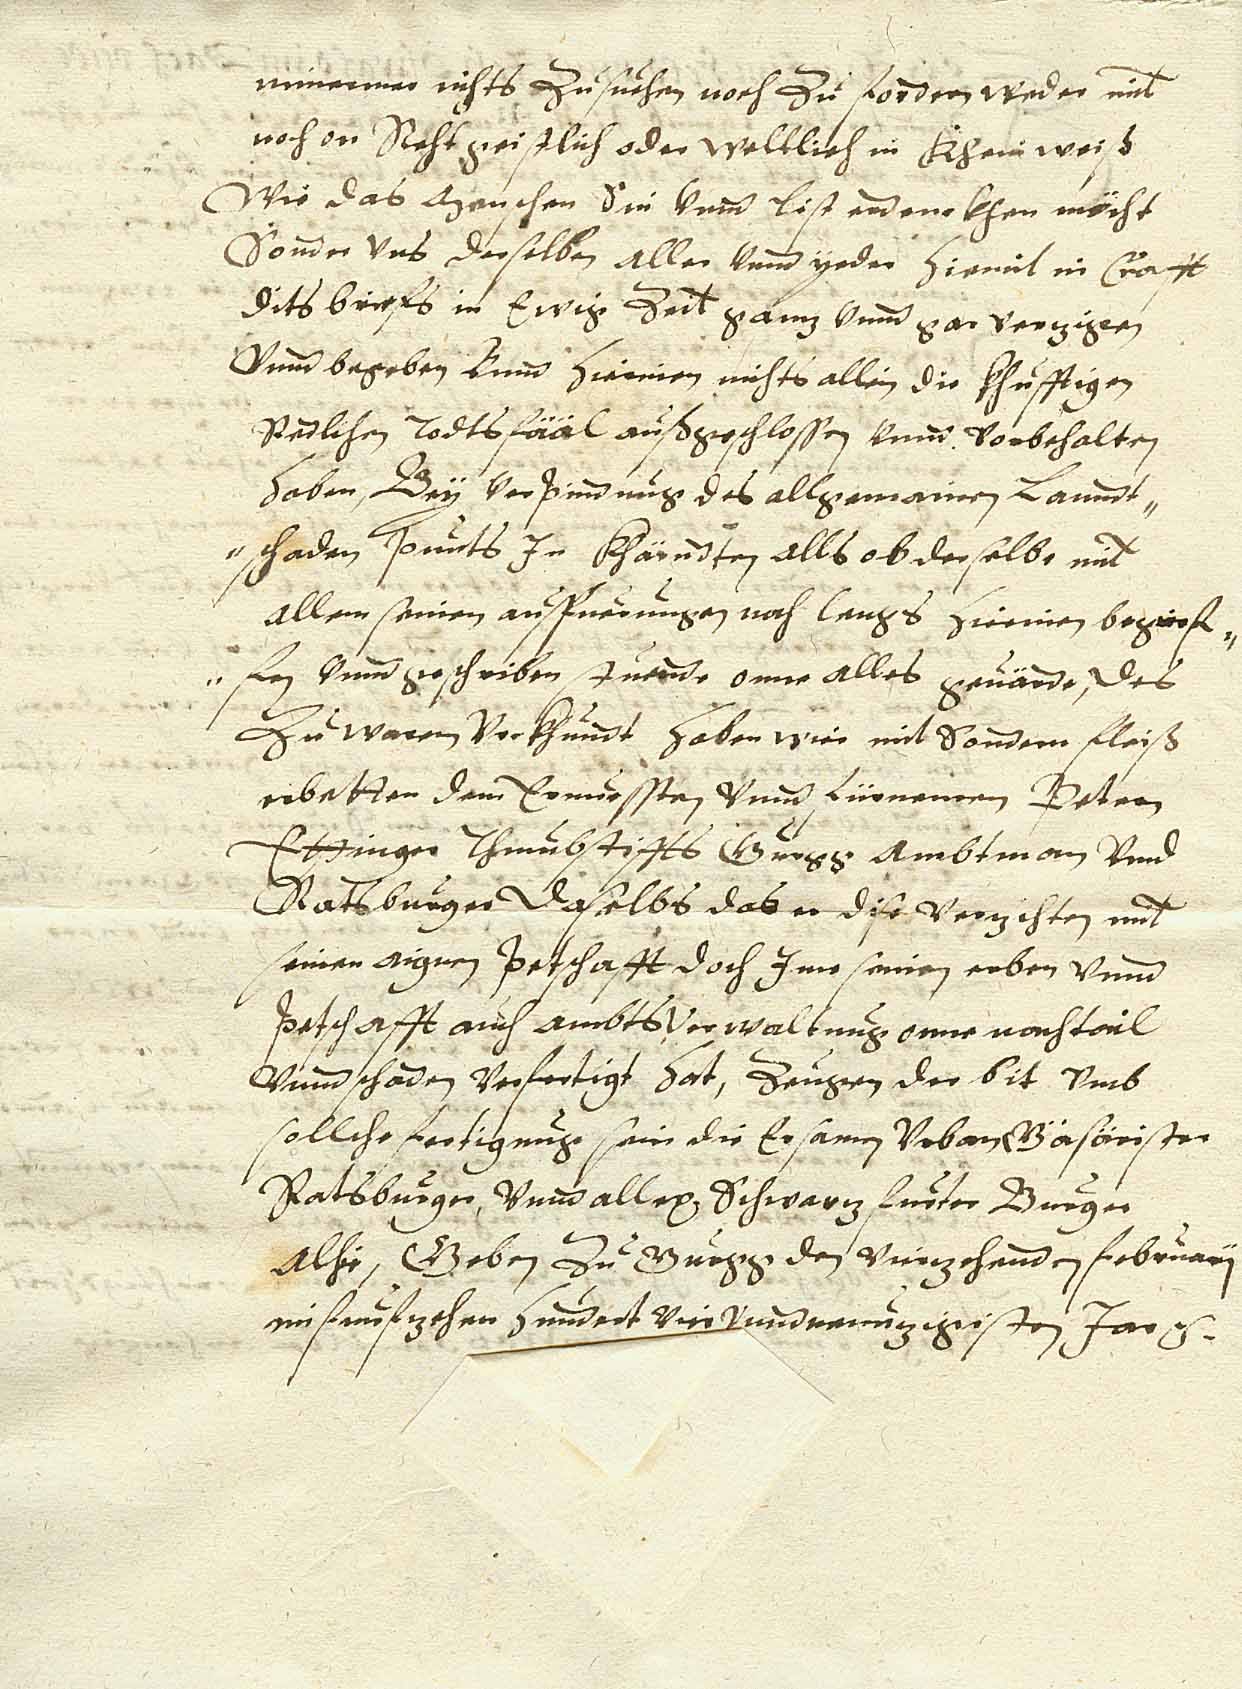 nimermer nichts Zusuchen noch Zu fordern weder mit
noch on Recht geistlich oder weltlich in khein weiß
Wie das Menschen Sin vnnd list erdenckhen möcht
Sonder vns derselben aller vnnd yeder hiemit in Crafft
dits briefs in Ewig Zeit ganz vnnd gar verzigen
Vnnd begeben vnnd hierinen nichts allein die khufftigen
Redlichen Todtsfääl außgeschlossen vnnd vorbehalten
haben, Bey verpindnug des allgemainen Lanndt„
„schaden punts In khärndten alls ob derselbe mit
allem seinen ausfuerungen nach lengs hierinen begrief„
„fen vnnd geschriben stuende onne alles geuärde, Des
Zu waren Vrkhundt haben wier mit Sondern fleiß
erbetten dem Ernuessten vnnd fürnemen Petern
Ettinger Thumbstiffts Gurgg Ambtman vnd
Ratsburger Daselbs das er dise verzichten mit
seinen aignen petschafft doch Ime seinen erben vnnd
petschafft auch ambtsverwaltnug onne nachtail
vnnd schaden verfertigt hat, Zeugen der bit vmb
sollche fertignug sein die Ersamen Vrban
Ratsburger, vnnd allex. Schwarz furter Burger
Alhie, Geben Zu Gurgg den vierzehenden februarij
im funfzehen hundert vier vnndneunzigisten Jar